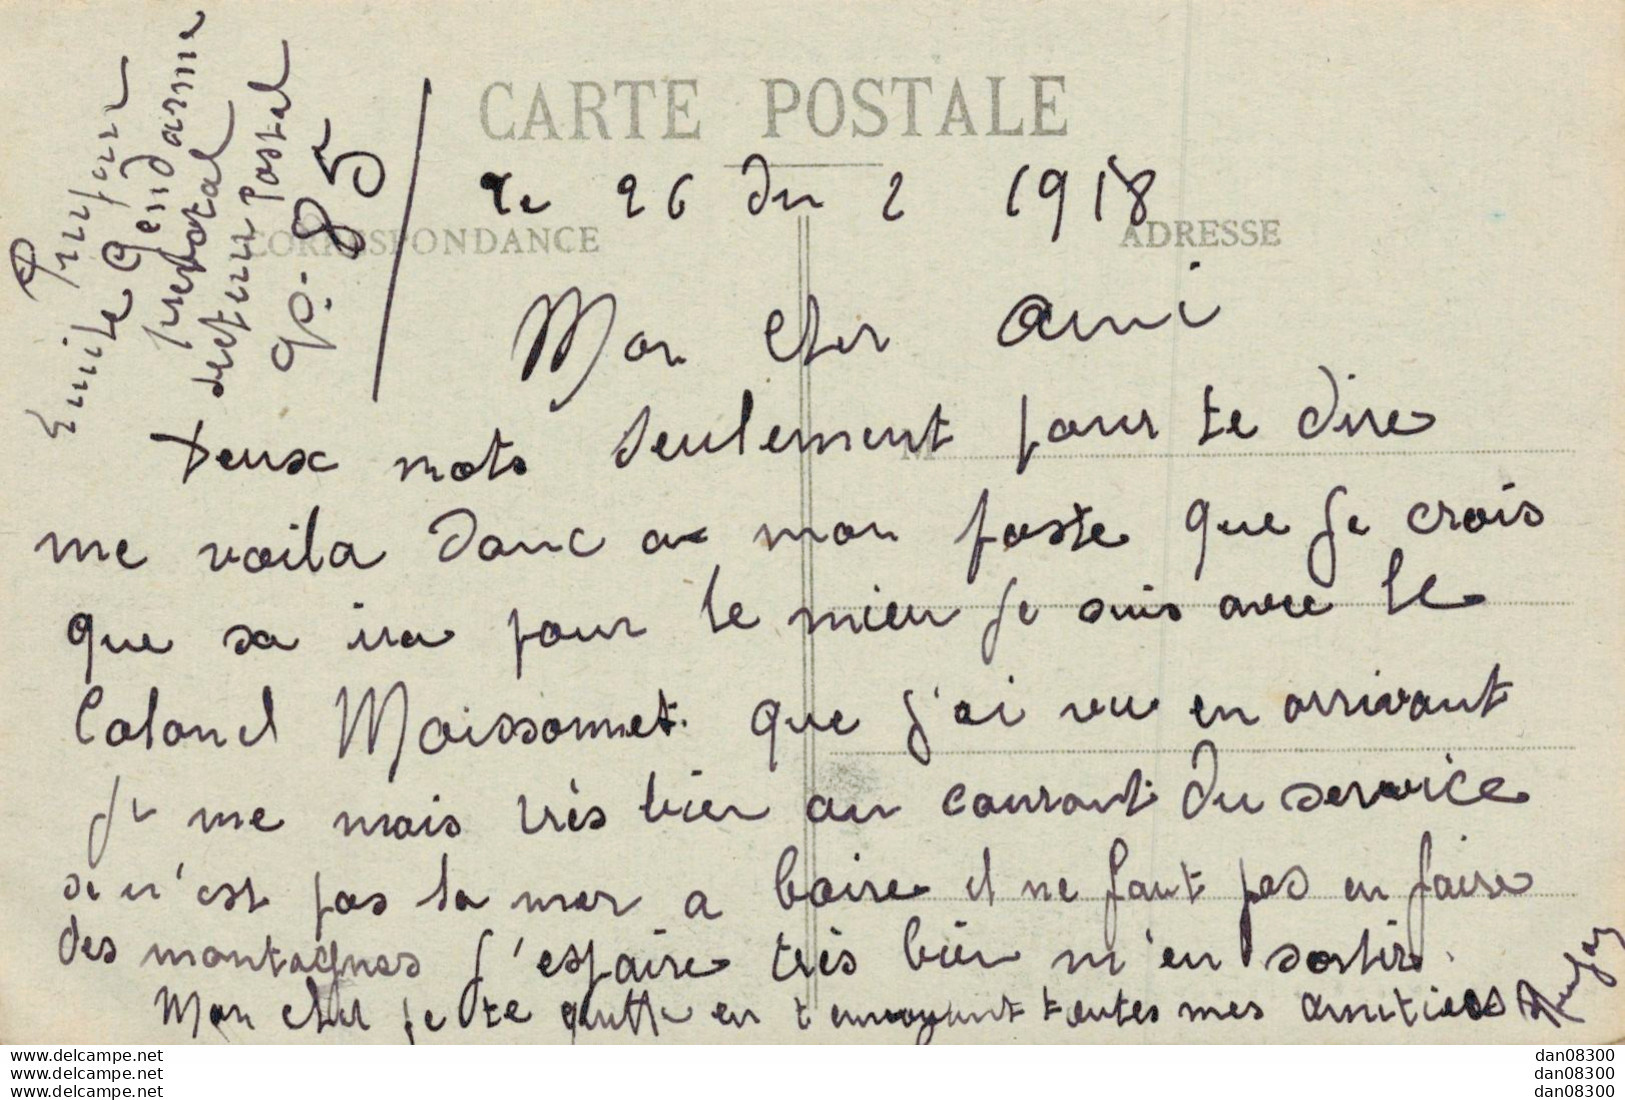 CARTE POSTALE
CORRESPONDANCE
ADRESSE
Emile
Gendarme
prevotal
secteur Postal
85
le 26 du 2 1918
Mon cher ami
deux mots seulement pour te dire
M
me voila donc a mon poste que je crois
que sa ira pour le mieu je suis avec le
Colonel Moissonnet que j'ai vu en arrivant
je me mais très bien au courant du service
se n'est pas la mer a boire il ne faut pas en faire
des montagnes j'espaire très bien m'en sortir.
Mon cher je te quitte en t envoyant toutes mes amitiees
www.delcampe.net
www.delcampe.net
www.delcampe.net
dan08300
dan08300
dan08300